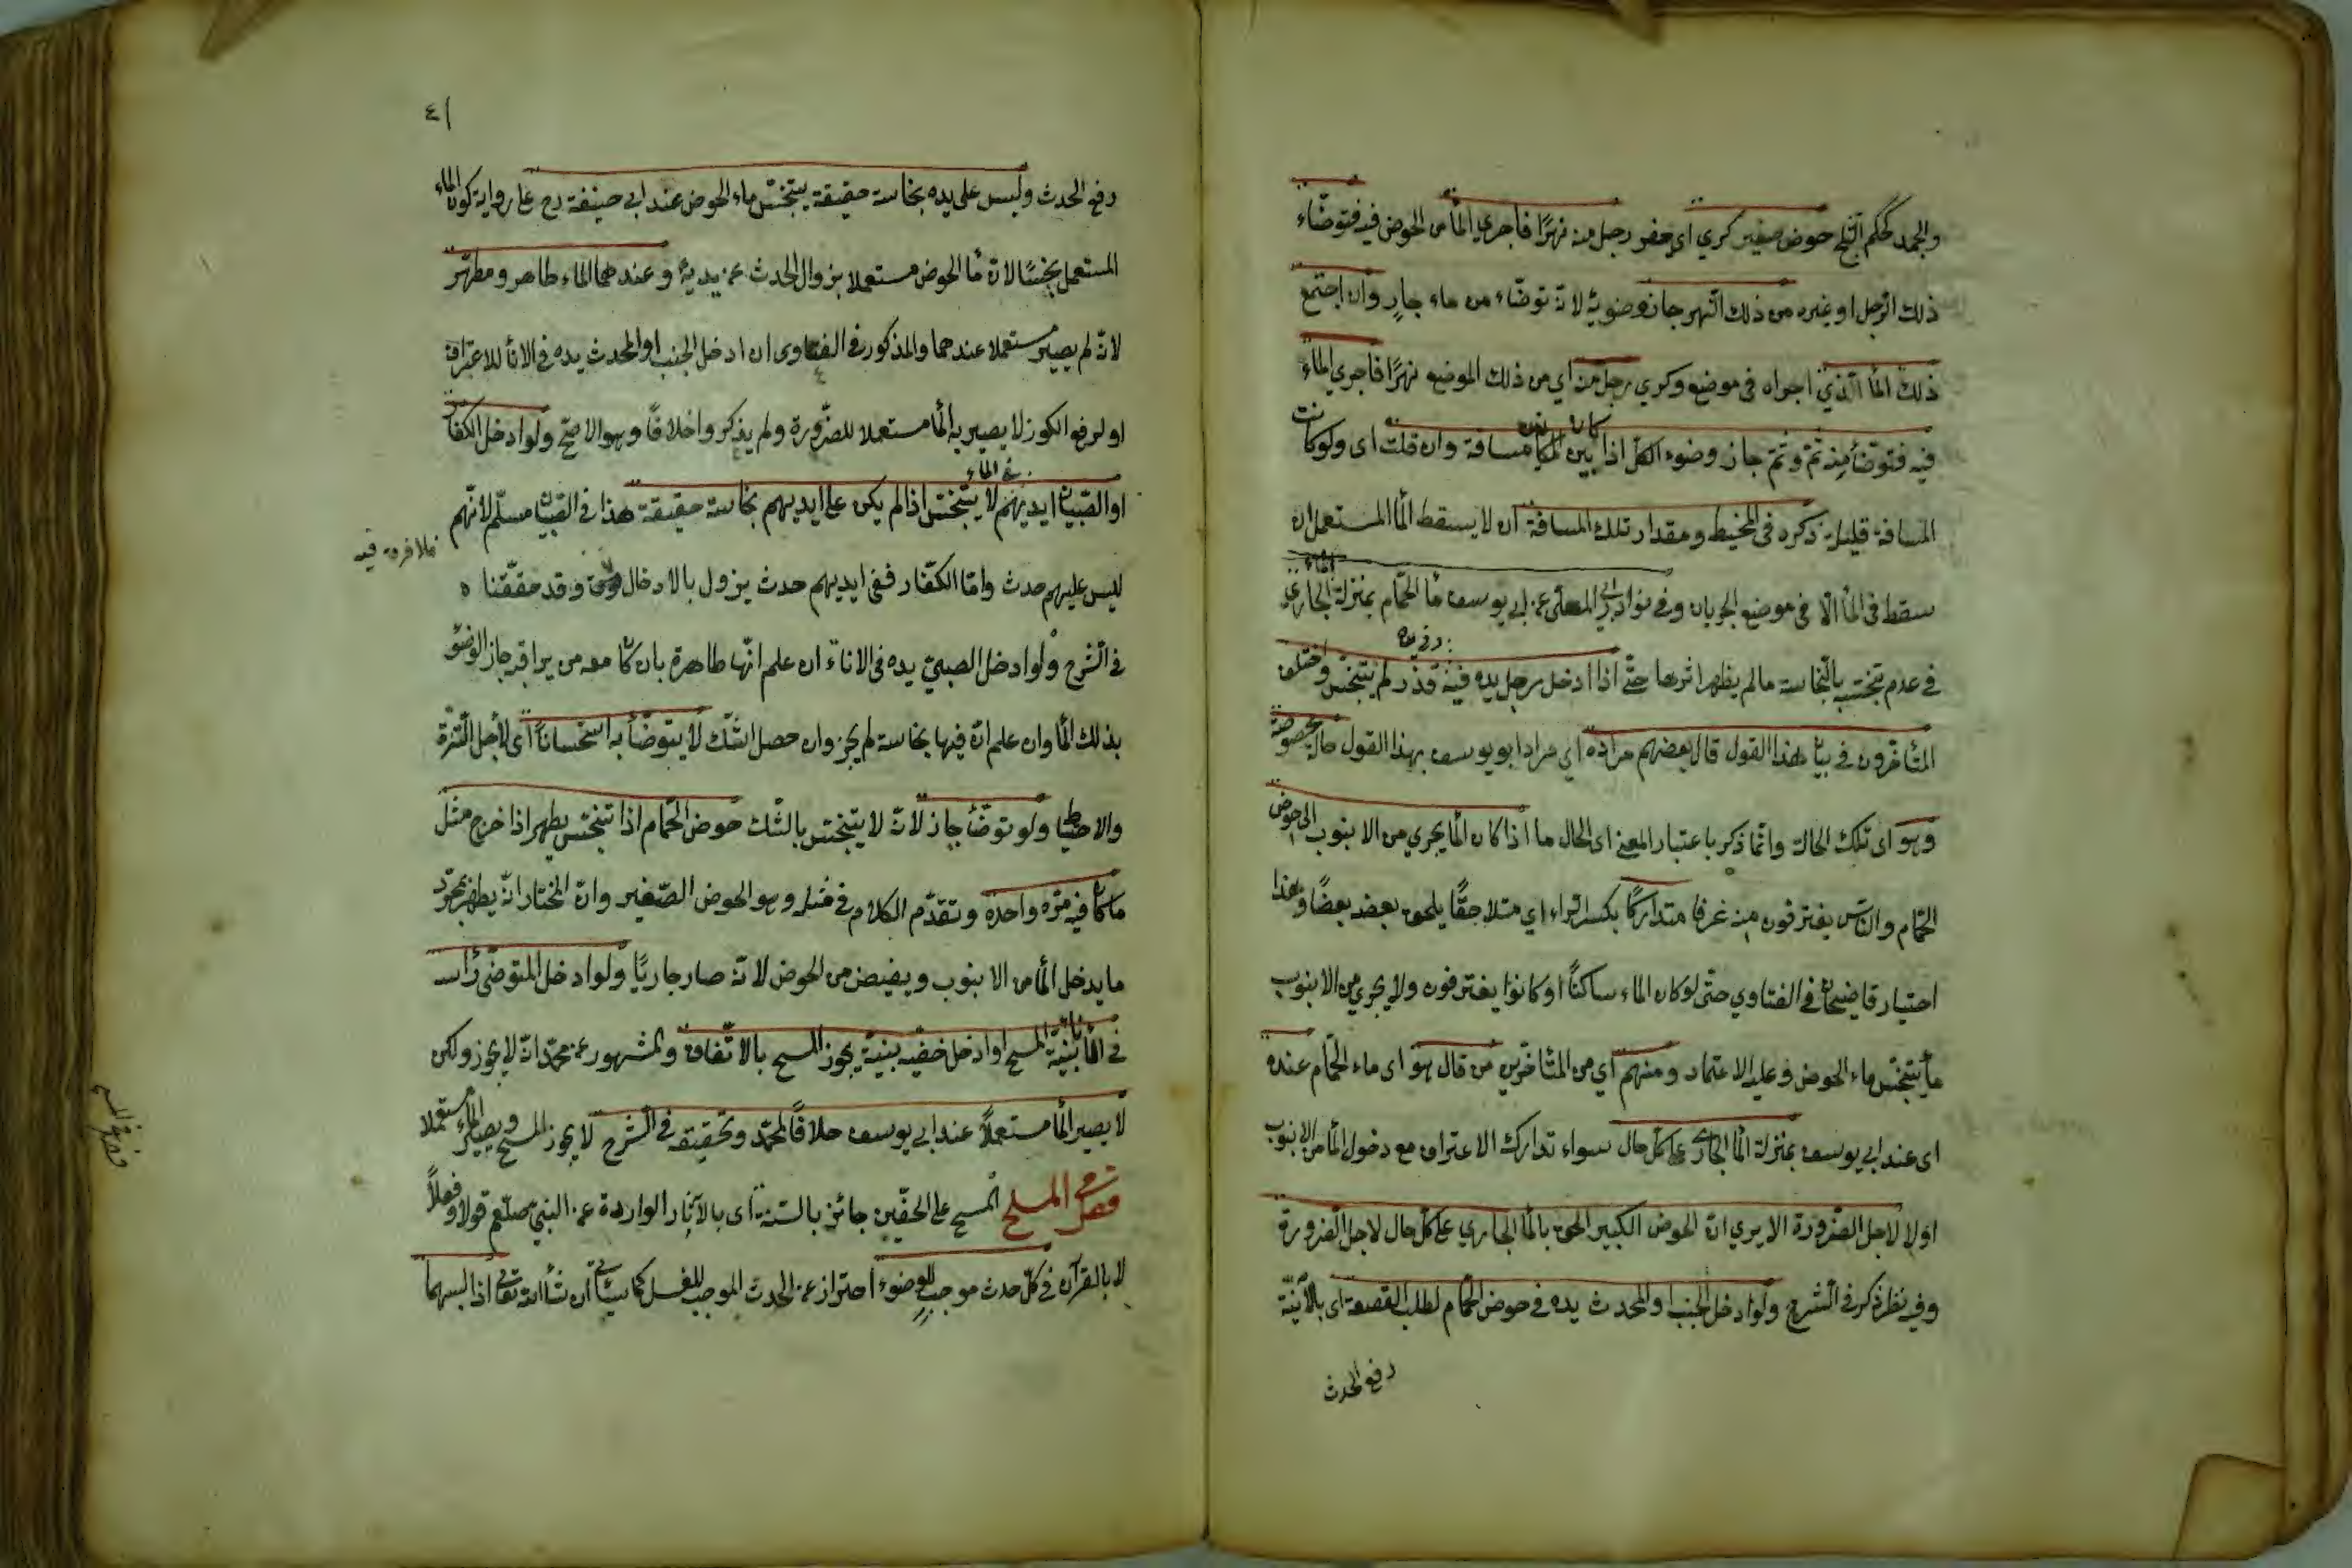 والجمد كحكم الثلج حوض صغير كري اي حفر رجل منه نهرًا فاجري الماء من الحوض فيه فتوضّاء
ذلك الرجل او غيره من ذلك النهر جاز وضوئه لانه توضّاء من ماء جارٍ وان اجتمع
ذلك الماء الذي اجراه في موضع وكري رجل منه اي من ذلك الموضع نهرًا فاجري الماء
فيه فتوضأ منه ثمّ وثمّ جاز وضوء الكل اذا كان بين المكانين مسافة وان قلت اى ولو كانت
المسافة قليلة ذكره فى المحيط ومقدار تلك المسافة ان لا يسقط الماء المستعمل ان
سقط فى الماء الّا فى موضع الجريان وفى نوادر المعلّى عن ابي يوسف ماء الحمّام بمنزلة الماء الجاري
فى عدم تنجّسه بالنّجاسة ما لم يظهر اثرها حتّى اذا ادخل رجل يده فيه وفي يده قذر لم يتنجّس واختلف
المتأخرون فى بيان هذا القول قال بعضهم مراده اي مراد ابو يوسف بهذا القول حالة مخصوصة
وهو اى تلك الحالة وانّما ذكر باعتبار المعنى اى الحال ما اذا كان الماء يجري من الانبوب الى حوض
الحمّام والنّاس يغترفون منه غرفا متداركًا بكسر الراء اي متلاحقًا يلحق بعضه بعضًا وهذا
اختيار قاضيخان فى الفتاوي حتّى لو كان الماء ساكنًا او كانوا يغترفون ولا يجري من الانبوب
ماء يتنجّس ماء الحوض وعليه الاعتماد ومنهم اي من المتأخرين من قال هو اى ماء الحمّام عنده
اى عند ابي يوسف بمنزلة الماء الجاري على كل حال سواء تدارك الاغتراف مع دخول الماء من الانبوب
اولا لاجل الضرورة الا يري انّ الحوض الكبير الحق بالماء الجاري على كل حال لاجل الضرورة
وفيه نظر ذكر فى الشرح ولو ادخل الجنب او المحدث يده فى حوض الحمّام لطلب القصعة اى بلا نيّة
رفع الحدث
٤١
رفع الحدث وليس على يده نجاسة حقيقة يتنجّس ماء الحوض عند ابي حنيفة رح على رواية كون الماء
المستعمل نجسًا لانّ ماء الحوض مستعملا بزوال الحدث عن يديه وعندهما الماء طاهر ومطهّر
لانّه لم يصير مستعملا عندهما والمذكور فى الفتاوى ان ادخل الجنب او المحدث يده فى الاناء للاغتراف
او لرفع الكوز لا يصير به الماء مستعملا للضّرورة ولم يذكروا خلافًا وهو الاصحّ ولو ادخل الكفّار
او الصّبيان ايديهم فى الماء لا يتنجّس اذا لم يكن على ايديهم نجاسة حقيقة هذا فى الصّبيان مسلّم لانّهم
ليس عليهم حدث وامّا الكفّار ففى ايديهم حدث يزول بالادخال وقد حققنا
فلا فرق فيه
فى الشرح ولو ادخل الصبيّ يده فى الاناء ان علم انّها طاهرة بان كان معه من يراقبه جاز الوضوء
بذلك الماء وان علم انّ فيها نجاسة لم يجز وان حصل الشّك لا يتوضّأ به استحسانًا اى لاجل التنزّه
والاحتياط ولو توضّأ جاز لانّه لا يتنجّس بالشّك حوض الحمّام اذا تنجّس يطهر اذا خرج مثل
ما كان فيه مرّة واحدة وتقدّم الكلام فى مثله وهو الحوض الصّغير وانّ المختار انّه يطهر بمجرّد
ما يدخل الماء من الانبوب ويفيض من الحوض لانّه صار جاريًا ولو ادخل المتوضّئ رأسه
فى الاناء بنيّة المسح او ادخل خفّيه بنيّة يجوز المسح بالاتّفاق والمشهور عن محمّد انّه لا يجوز ولكن
لا يصير الماء مستعملاً عند ابي يوسف خلافًا لمحمّد وتحقيقه فى الشّرح لا يجوز المسح ويصير الماء مستعملا
فصل في المسح المسح على الخفّين جائز بالسّنة اى بالآثار الواردة عن النبيّ صلّعم قولا وفعلاً
لا بالقرآن فى كلّ حدث موجب للوضوء احتراز عن الحدث الموجب للغسل كما سيأتي ان شاء الله تعالى اذا لبسهما
فصل في المسح